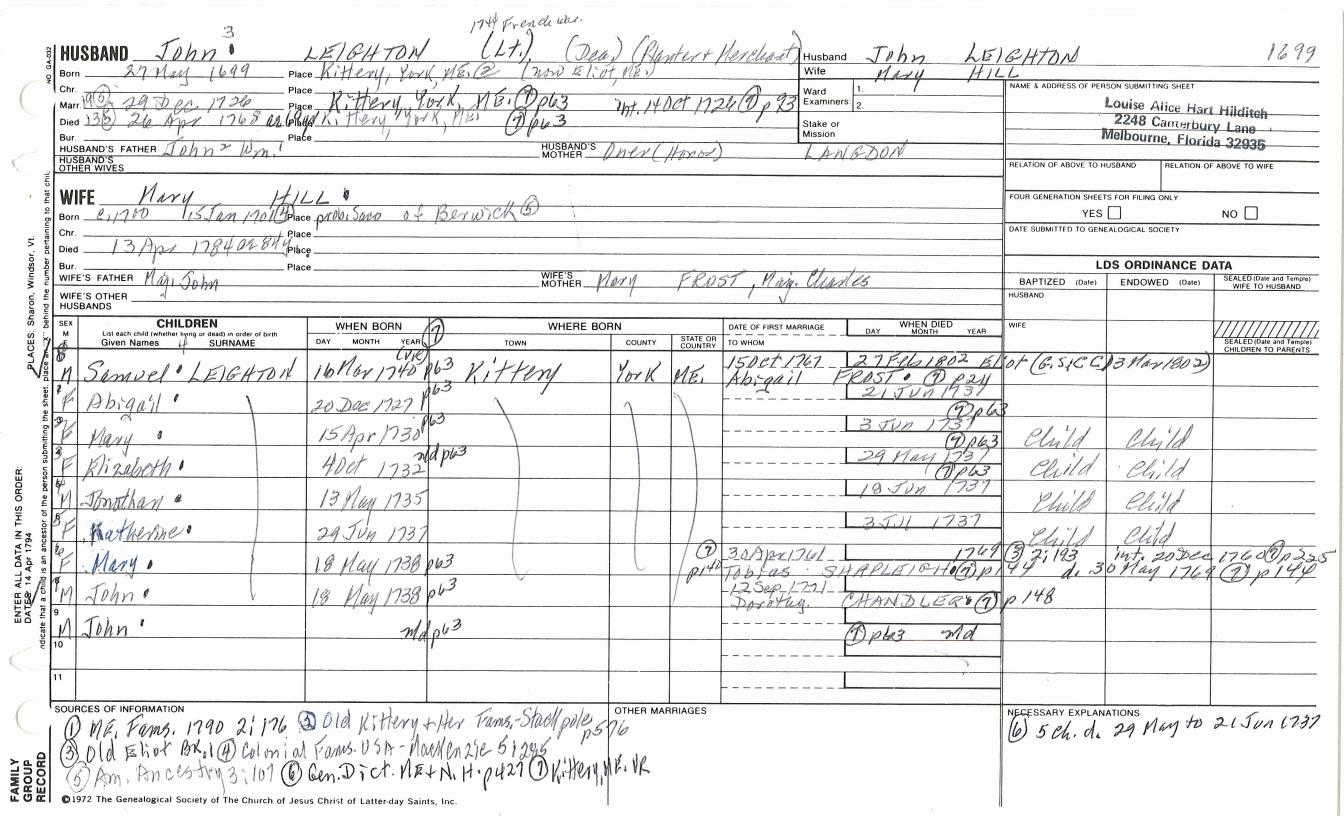 1744 French War.
HUSBAND John 3 LEIGHTON (Lt.) (Dea) (Planter + Merchant)
Born 27 May 1699 Place Kittery, York, ME. ② (now Eliot, ME)
Chr. Place
Marr. 29 Dec 1726 Place Kittery, York, ME. ⑦ p63 int. 14 Oct 1726 ⑦ p93
Died 26 Apr 1768 Place Kittery, York, ME. ⑦ p63
Bur. Place
HUSBAND'S FATHER John 2 Wm. 1 HUSBAND'S MOTHER Oner (Honor) LANGDON
HUSBAND'S OTHER WIVES
Husband John LEIGHTON 1699
Wife Mary HILL
Ward Examiners 1.
2.
Stake or Mission
NAME & ADDRESS OF PERSON SUBMITTING SHEET
Louise Alice Hart Hilditch
2248 Canterbury Lane
Melbourne, Florida 32935
RELATION OF ABOVE TO HUSBAND RELATION OF ABOVE TO WIFE
FOUR GENERATION SHEETS FOR FILING ONLY
YES NO
DATE SUBMITTED TO GENEALOGICAL SOCIETY
WIFE Mary HILL
Born c. 1700 15 Jan 1701 ④ Place prob. Saco of Berwick ⑤
Chr. Place
Died 13 Apr 1784 ae 84y Place
Bur. Place
WIFE'S FATHER Maj. John WIFE'S MOTHER Mary FROST, Maj. Charles
WIFE'S OTHER HUSBANDS
LDS ORDINANCE DATA
BAPTIZED (Date) ENDOWED (Date) SEALED (Date and Temple) WIFE TO HUSBAND
HUSBAND
WIFE
SEALED (Date and Temple) CHILDREN TO PARENTS
SEX M F CHILDREN WHEN BORN ⑦ WHERE BORN DATE OF FIRST MARRIAGE WHEN DIED
List each child (whether living or dead) in order of birth
Given Names SURNAME DAY MONTH YEAR TOWN COUNTY STATE OR COUNTRY TO WHOM DAY MONTH YEAR
M Samuel 4 LEIGHTON 16 Mar 1740 (VR) p63 Kittery York ME. 15 Oct 1767 27 Feb 1802 Eliot (G.S.) (C.C. 13 Mar 1802)
Abigail FROST ⑦ p24
F Abigail 20 Dec 1727 p63 21 Jun 1737 ⑦ p63
F Mary 15 Apr 1730 p63 3 Jun 1737 ⑦ p63 Child Child
F Elizabeth 4 Oct 1732 n/d p63 29 May 1737 ⑦ p63 Child Child
M Jonathan 13 May 1735 18 Jun 1737 Child Child
F Katherine 29 Jun 1737 3 Jul 1737 Child Child
F Mary 18 May 1738 p63 ⑦ p140 30 Apr 1761 1769 ③ 2:193 int. 20 Dec 1760 ⑦ p225
Tobias SHAPLEIGH ⑦ p144 d. 30 May 1769 ⑦ p144
M John 18 May 1738 p63 12 Sep 1771
Dorothy CHANDLER ⑦ p148
9
M John n/d p63 ⑦ p63 n/d
10
11
SOURCES OF INFORMATION
① ME. Fams. 1790 2:176 ② Old Kittery + Her Fams.-Stackpole p576
③ Old Eliot Bk.1 ④ Colonial Fams. USA - MacKenzie 5:285
⑤ Am. Ancestry 3:107 ⑥ Gen. Dict. ME + N.H. p427 ⑦ Kittery, ME. VR
OTHER MARRIAGES
NECESSARY EXPLANATIONS
⑥ 5 ch. d. 29 May to 21 Jun 1737
©1972 The Genealogical Society of The Church of Jesus Christ of Latter-day Saints, Inc.
FAMILY GROUP RECORD
ENTER ALL DATA IN THIS ORDER:
DATES: 14 Apr 1794
PLACES: Sharon, Windsor, Vt.